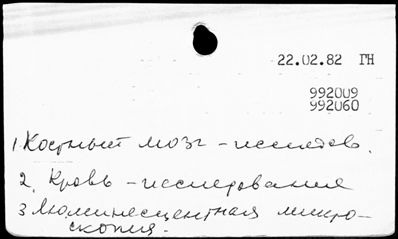 22.02.82 ГН
992009
992060
1 Костный мозг - исследов.
2. Кровь - исследования
3 Люминесцентная микро-
скопия.